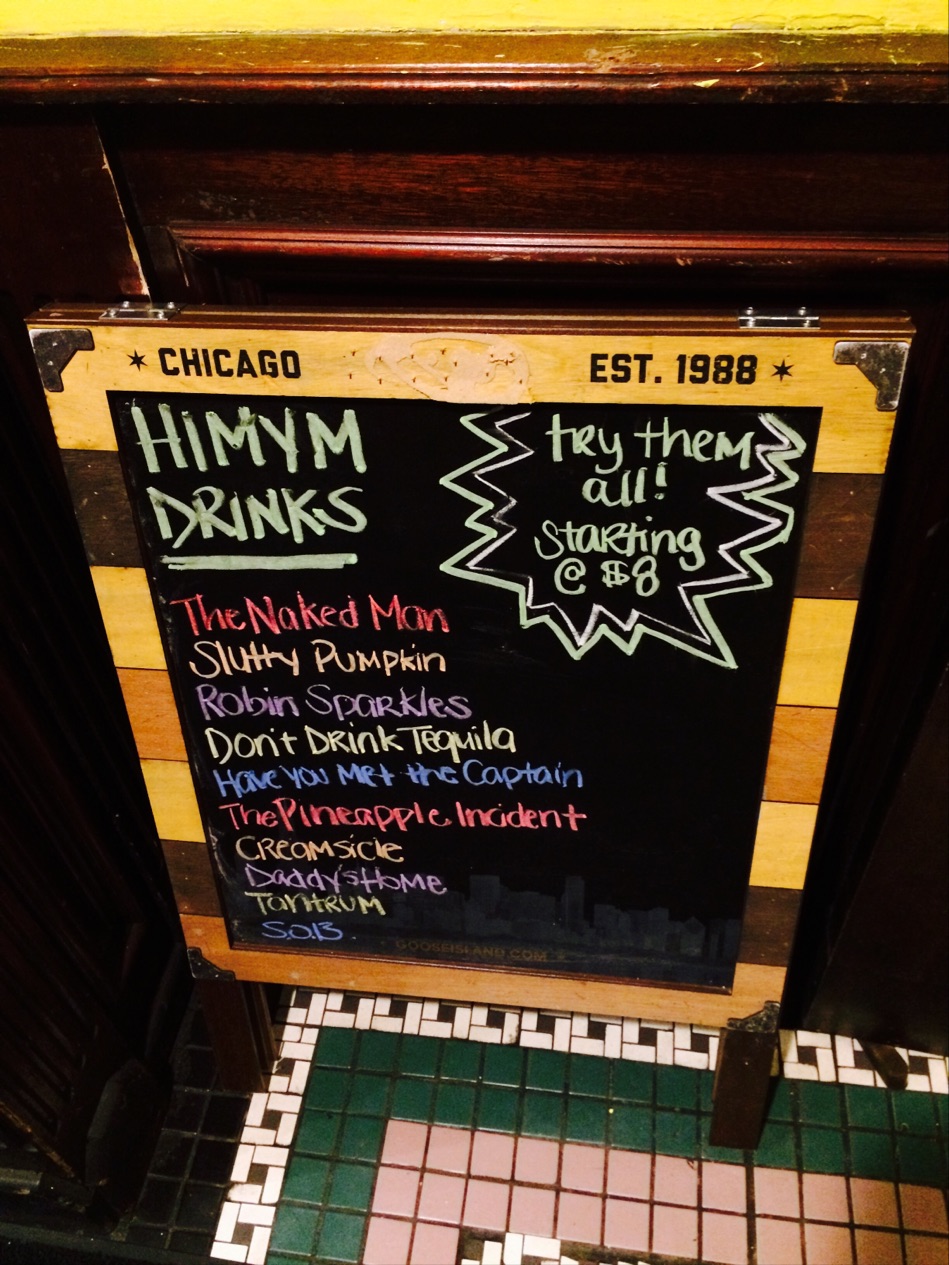 CHICAGO EST. 1988
HIMYM
DRINKS
try them
all!
Starting
@ $8
The Naked Man
Slutty Pumpkin
Robin Sparkles
Don't Drink Tequila
Have You Met the Captain
The Pineapple Incident
Creamsicle
Daddy's Home
Tantrum
S.O.13
GOOSEISLAND.COM